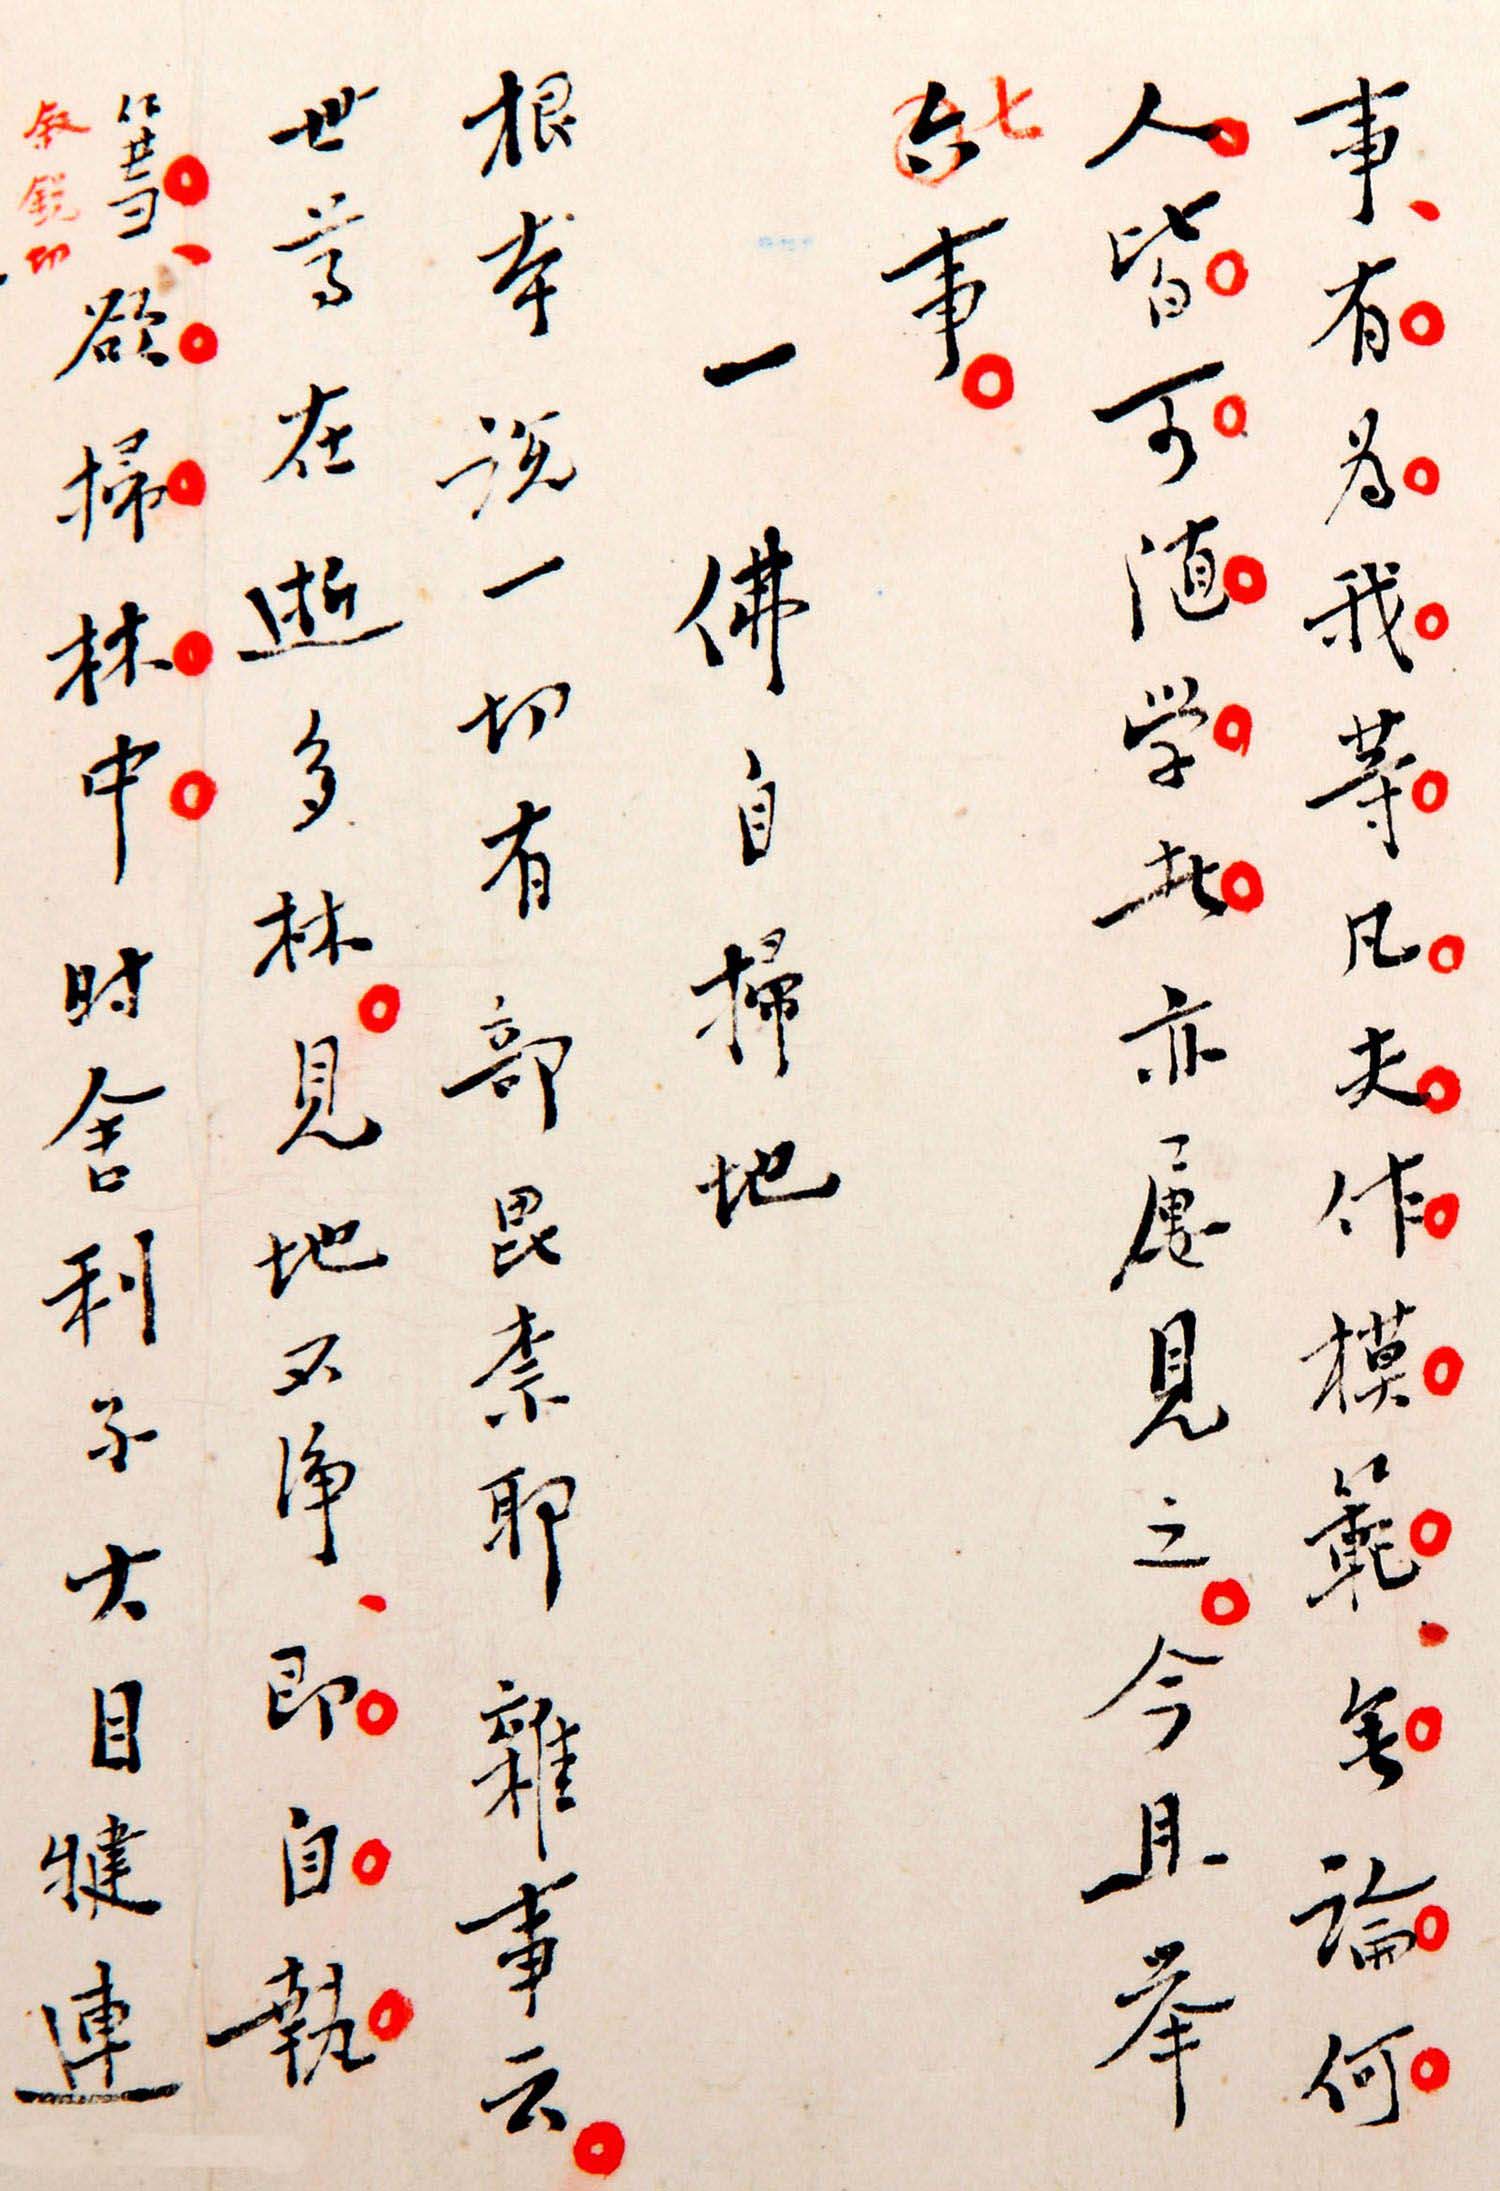 事、有為我等凡夫作模範、無論何
人皆可随学此亦屡見之。今且举
七
六事。
一 佛自掃地
根本説一切有部毘奈耶雜事云。
世尊在逝多林。見地不淨、即自執
篲、欲掃林中时舍利子大目犍連
鋭切